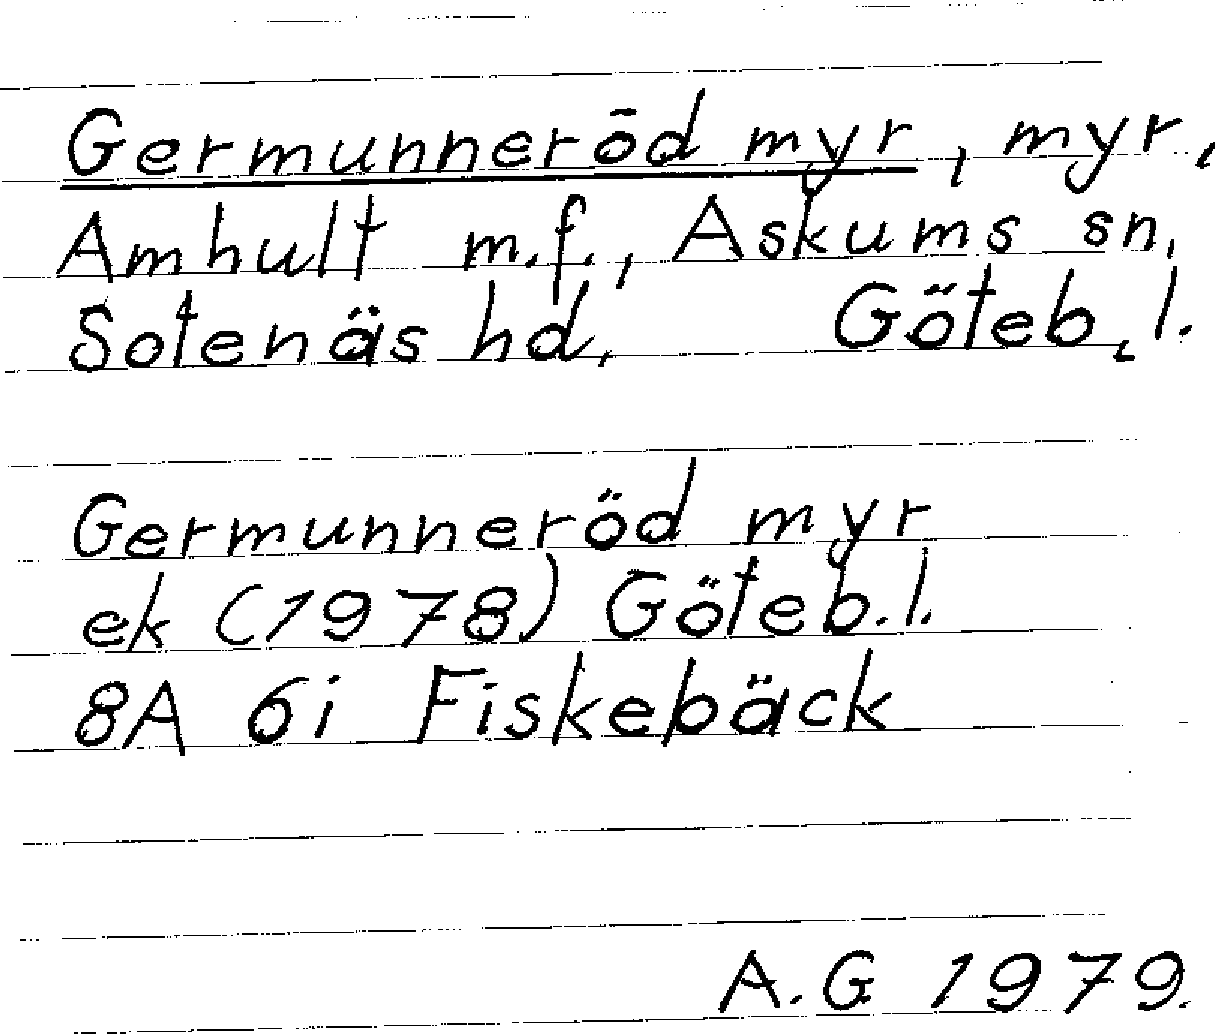 Germunneröd myr, myr,
Amhult m.f., Askums sn,
Sotenäs hd, Göteb, l.
Germunneröd myr
ek (1978) Göteb. l.
8A 6i Fiskebäck
A. G 1979.